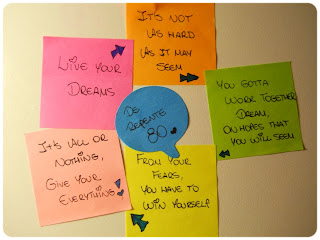 IT'S NOT
AS HARD
AS IT MAY
SEEM
LIVE YOUR
DREAMS
YOU GOTTA
WORK TOGETHER
DREAM,
ON HOPES THAT
YOU WILL SEEM
DE
REPENTE
80
IT'S ALL OR
NOTHING,
GIVE YOUR
EVERYTHING!
FROM YOUR
FEARS,
YOU HAVE TO
WIN YOURSELF